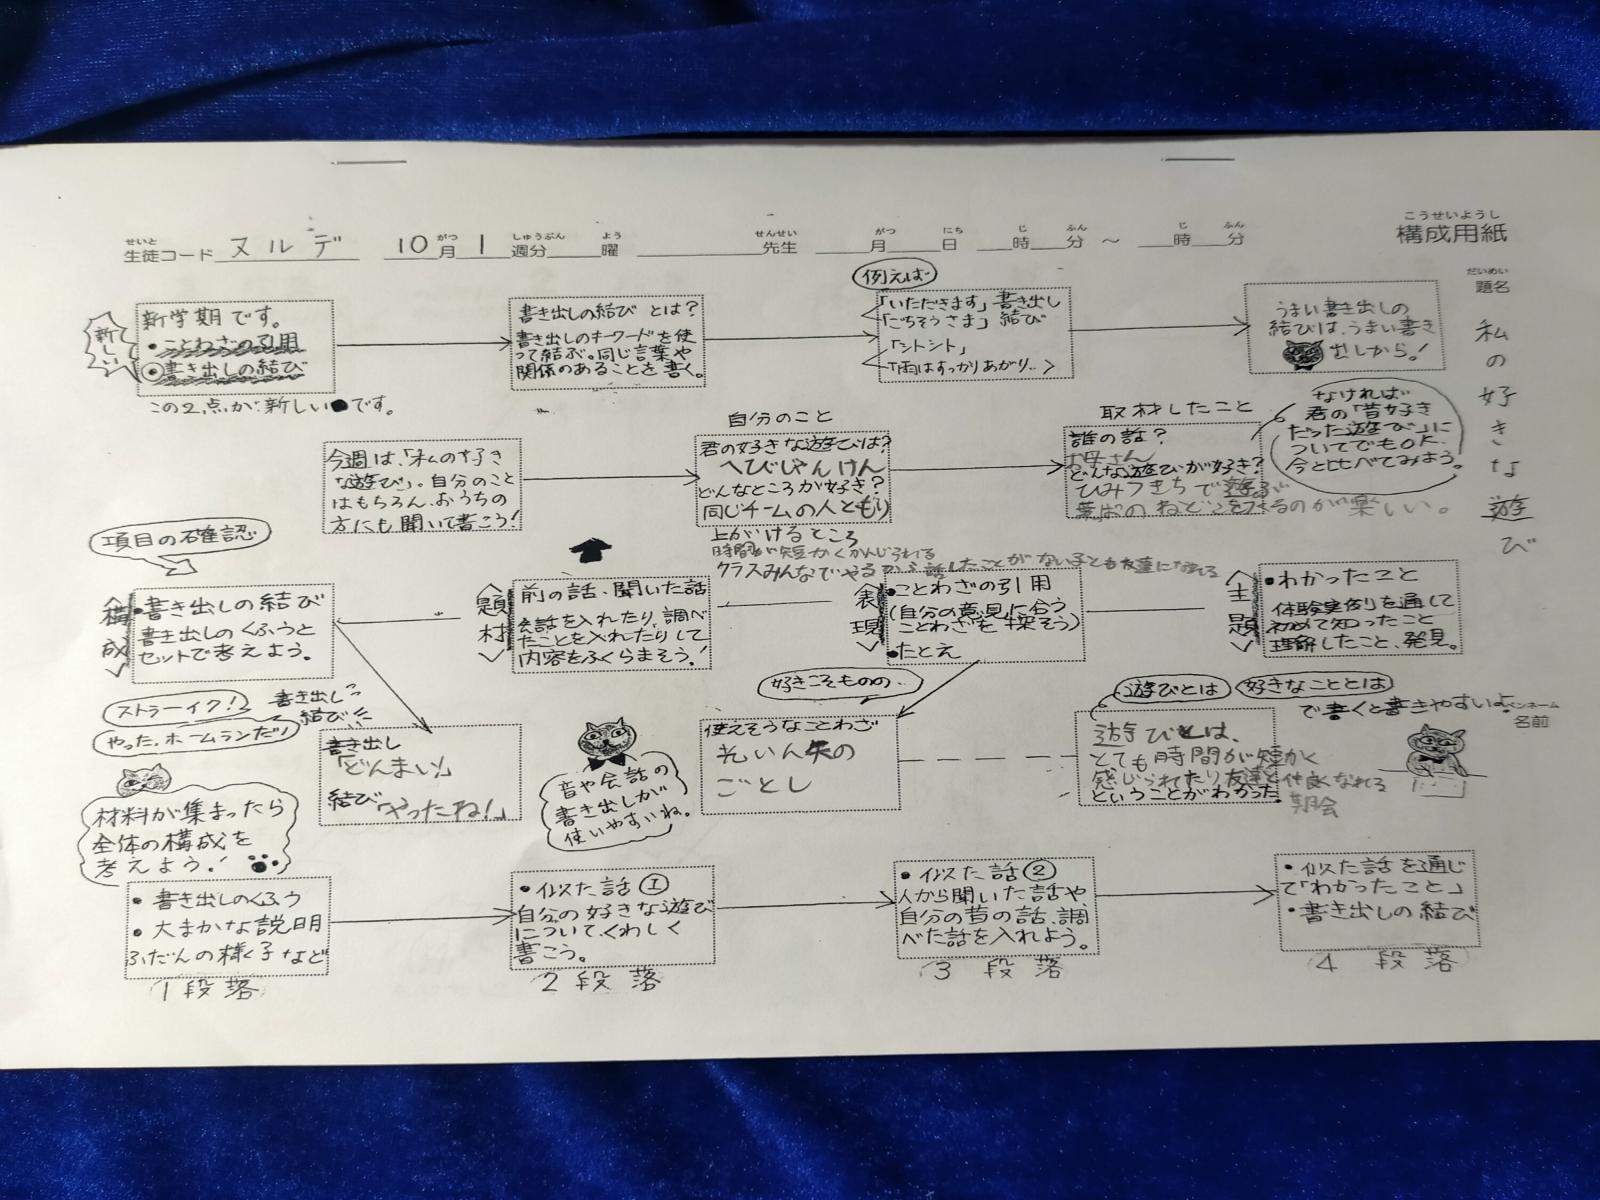 こうせいようし
構成用紙
せいと がつ しゅうぶん よう せんせい がつ にち じ ふん じ ふん
生徒コード ヌルデ 10月1週分 曜 先生 月 日 時 分 ～ 時 分
だいめい
題名
私の好きな遊び
新しい
新学期です。
・ことわざの引用
・書き出しの結び
この2点が新しいです。
書き出しの結びとは?
書き出しのキーワードを使
って結ぶ。同じ言葉や
関係のあることを書く。
例えば
「いただきます」書き出し
「ごちそうさま」結び
「シトシト」
「雨はすっかりあがり‥
うまい書き出しの
結びは、うまい書き
出しから!
今週は、「私の好き
な遊び」。自分のこと
はもちろん、おうちの
方にも聞いて書こう!
自分のこと
君の好きな遊びは?
へびじゃんけん
どんなところが好き?
同じチームの人ともり
上がけるところ
時間が短かくかんじられる
クラスみんなでやるから話したことがない子とも友達になれる
取材したこと
誰の話?
お母さん
どんな遊びが好き?
ひみつきちで遊ぶ
葉ぱのねどこをつくるのが楽しい。
なければ
君の「昔好き
だった遊び」に
ついてでもOK.
今と比べてみよう。
項目の確認
構成
・書き出しの結び
書き出しのくふうと
セットで考えよう。
題材
前の話、聞いた話
会話を入れたり、調べ
たことを入れたりして
内容をふくらまそう!
表現
・ことわざの引用
(自分の意見に合う
ことわざを探そう)
・たとえ
主題
・わかったこと
体験実例を通して
初めて知ったこと
理解したこと、発見。
ストライク!
やった、ホームランだ!
書き出し
結び
書き出し
「どんまい」
結び「やったね!」
音や会話の
書き出しが
使いやすいね。
好きこそものの‥
使えそうなことわざ
光いん矢の
ごとし
遊びとは 好きなこととは
で書くと書きやすいよ
遊びとは、
とても時間が短かく
感じられたり、友達と仲良くなれる
ということがわかった。
ペンネーム
名前
材料が集まったら
全体の構成を
考えよう!
・書き出しのくふう
・大まかな説明
ふだんの様子など
1段落
・似た話①
自分の好きな遊び
について、くわしく
書こう。
2段落
・似た話②
人から聞いた話や、
自分の昔の話、調
べた話を入れよう。
3段落
・似た話を通じ
て「わかったこと」
・書き出しの結び
4段落